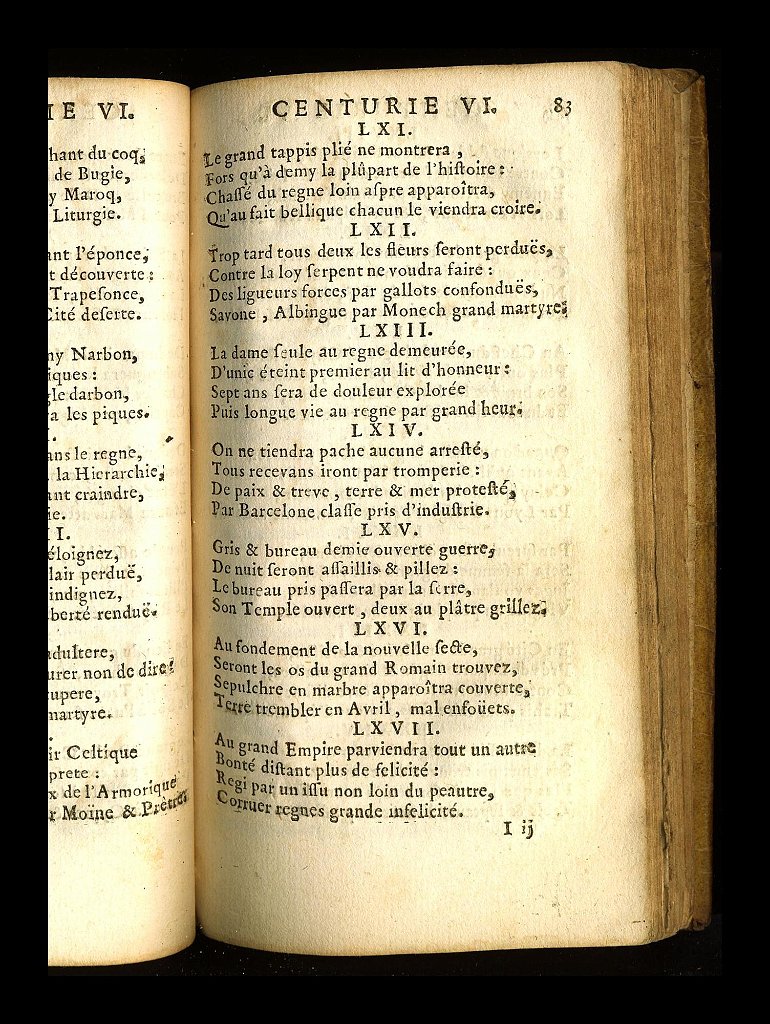 IE VI.
hant du coq,
de Bugie,
y Maroq,
Liturgie.
ant l'éponce,
t découverte :
Trapesonce,
Cité deserte.
ny Narbon,
iques :
gle darbon,
a les piques.
ans le regne,
la Hierarchie,
ant craindre,
ie.
II.
éloignez,
lair perduë,
indignez,
berté renduë.
adultere,
urer non de dire :
cupere,
martyre.
ir Celtique
prete :
x de l'Armorique
r Moïne & Prêtre
CENTURIE VI. 83
LXI.
Le grand tappis plié ne montrera ,
Fors qu'à demy la plûpart de l'hiſtoire :
Chaſſé du regne loin aſpre apparoîtra,
Qu'au fait bellique chacun le viendra croire.
LXII.
Trop tard tous deux les fleurs ſeront perduës,
Contre la loy ſerpent ne voudra faire :
Des ligueurs forces par gallots confonduës,
Savone , Albingue par Monech grand martyre.
LXIII.
La dame ſeule au regne demeurée,
D'unic éteint premier au lit d'honneur :
Sept ans ſera de douleur explorée
Puis longue vie au regne par grand heur.
LXIV.
On ne tiendra pache aucune arreſté,
Tous recevans iront par tromperie :
De paix & treve , terre & mer proteſté,
Par Barcelone claſſe pris d'induſtrie.
LXV.
Gris & bureau demie ouverte guerre,
De nuit ſeront aſſaillis & pillez :
Le bureau pris paſſera par la ſerre,
Son Temple ouvert , deux au plâtre grillez.
LXVI.
Au fondement de la nouvelle ſecte,
Seront les os du grand Romain trouvez,
Sepulchre en marbre apparoîtra couverte,
Terre trembler en Avril , mal enfoüets.
LXVII.
Au grand Empire parviendra tout un autre
Bonté diſtant plus de felicité :
Regi par un iſſu non loin du peautre,
Corruer regnes grande infelicité.
I ij